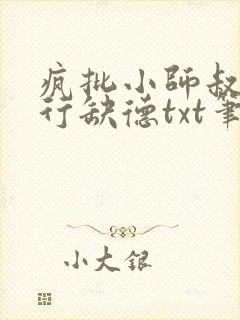 疯批小師叔
行缺德txt筆
小大银